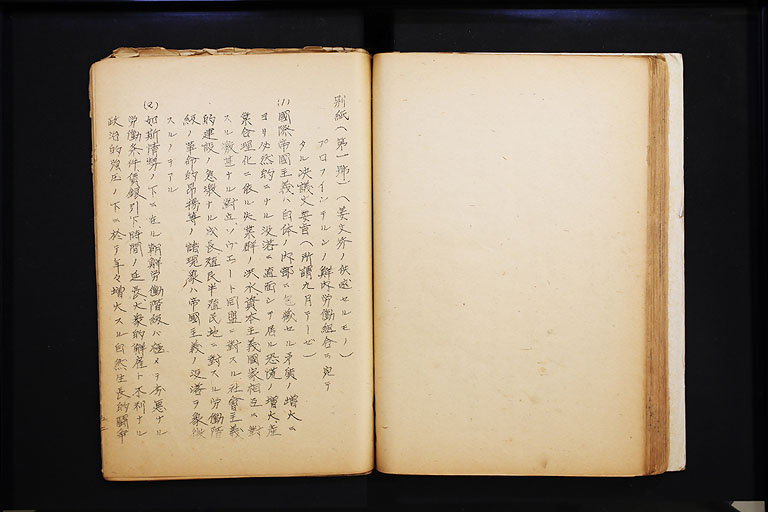 別紙(第一號)(姜文秀ノ供述セルモノ)
プロフインテルンノ鮮内労働組合ニ宛テ
タル決議文要旨(所謂九月テーゼ)
(1)國際帝國主義ハ自体ノ内部ニ包藏セル矛盾ノ増大ニ
ヨリ必然的ニナル没落ニ直面シテ居ル恐慌ノ増大、産
業合理化ニ依ル失業群ノ洪水資本主義國家相互ニ對
スル激甚ナル對立ソヴエート同盟ニ對スル社會主義
的建設ノ急激ナル成長殖民半殖民地ニ對スル労働階
級ノ革命的昂揚等ノ諸現象ハ帝國主義ノ没落ヲ象徴
スルノデアル
(2)如斯情勢ノ下ニ在ル朝鮮労働階級ハ極メテ劣悪ナル
労働条件賃銀引下時間ノ延長大衆的解雇ト不利ナル
政治的強圧ノ下ニ於テ年々増大スル自然生長的闘争